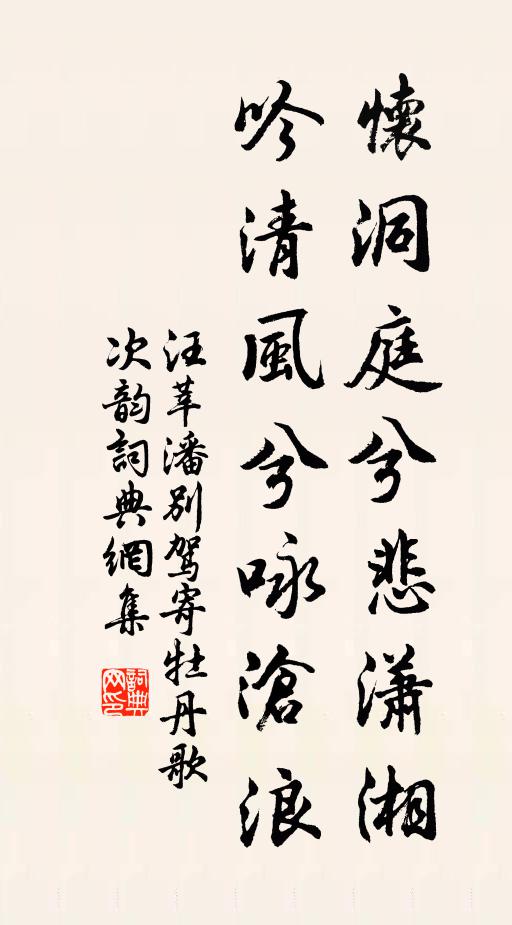 懷洞庭兮悲瀟湘
吟清風兮咏滄浪
汪莘潘別駕寄牡丹歌
次韵詞典網集
詞典網印